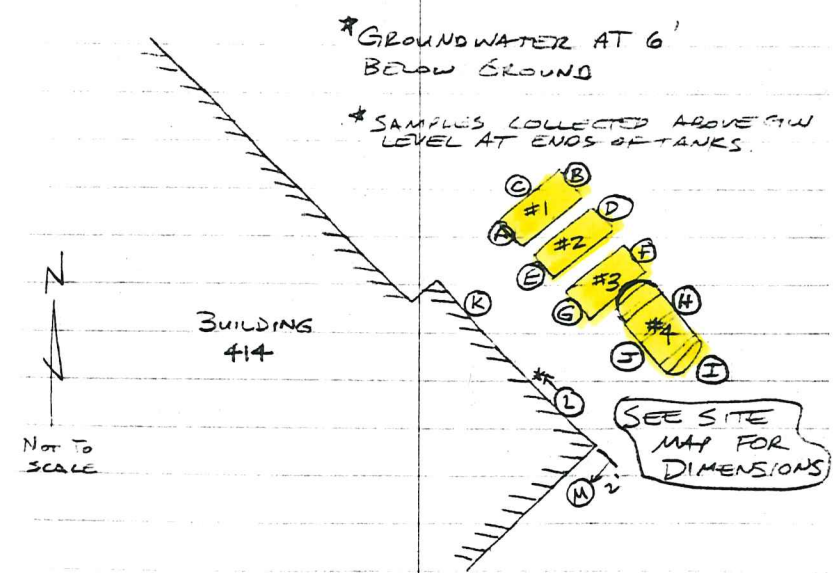 *GROUNDWATER AT 6'
BELOW GROUND
*SAMPLES COLLECTED ABOVE GW
LEVEL AT ENDS OF TANKS.
C
B
#1
A
D
#2
E
F
#3
G
H
#4
J
I
N
K
BUILDING
414
L
NOT TO
SCALE
SEE SITE
MAP FOR
DIMENSIONS
M
2'